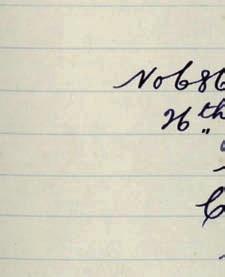 No 686
26th
"
C